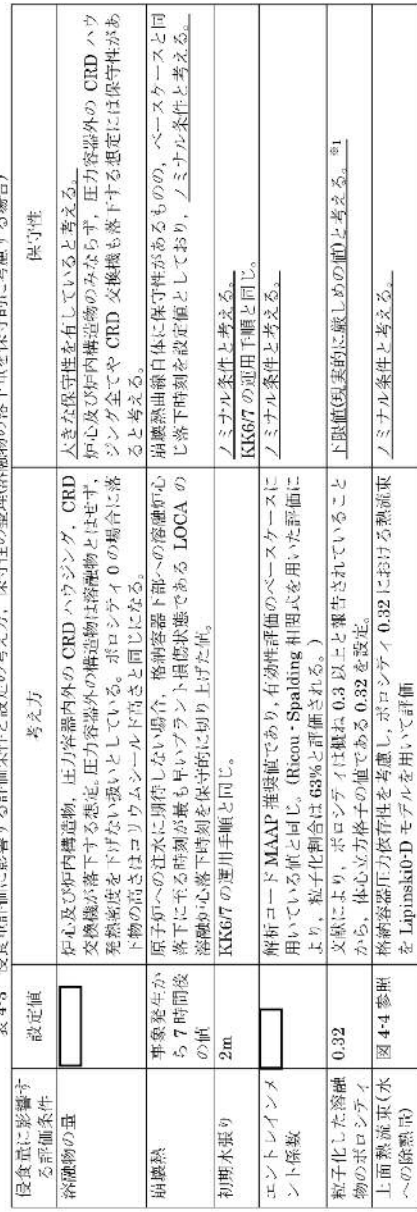 表 4-3 侵食量評価に影響する評価条件と設定の考え方、保守性の整理(溶融物の落下量を保守的に考慮する場合)
侵食量に影響す
る評価条件
設定値
考え方
保守性
溶融物の量
炉心及び炉内構造物，圧力容器内外の CRD ハウジング，CRD
交換機が落下する想定。圧力容器外の構造物は溶融物とはせず，
発熱密度を下げない扱いとしている。ポロシティ 0 の場合に落
下物の高さはコリウムシールド高さと同じになる。
大きな保守性を有していると考える。
炉心及び炉内構造物のみならず，圧力容器外の CRD ハウ
ジング全てや CRD 交換機も落下する想定には保守性があ
ると考える。
崩壊熱
事象発生か
ら 7 時間後
の値
原子炉への注水に期待しない場合，格納容器下部への溶融炉心
落下に至る時刻が最も早いプラント損傷状態である LOCA の
溶融炉心落下時刻を保守的に切り上げた値。
崩壊熱曲線自体に保守性があるものの，ベースケースと同
じ落下時刻を設定値としており，ノミナル条件と考える。
初期水張り
2m
KK6/7 の運用手順と同じ。
ノミナル条件と考える。
KK6/7 の運用手順と同じ。
エントレインメ
ント係数
解析コード MAAP 推奨値であり，有効性評価のベースケースに
用いている値と同じ。(Ricou・Spalding 相関式を用いた評価に
より，粒子化割合は 63%と評価される。)
ノミナル条件と考える。
粒子化した溶融
物のポロシティ
0.32
文献により，ポロシティは概ね 0.3 以上と報告されていること
から，体心立方格子の値である 0.32 を設定。
下限値(現実的に厳しめの値)と考える。※1
上面熱流束(水
への除熱量)
図 4-4 参照
格納容器圧力依存性を考慮し，ポロシティ 0.32 における熱流束
を Lapinski0-D モデルを用いて評価
ノミナル条件と考える。